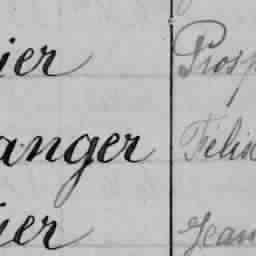 ier Prosp
anger Félix
ier Jean